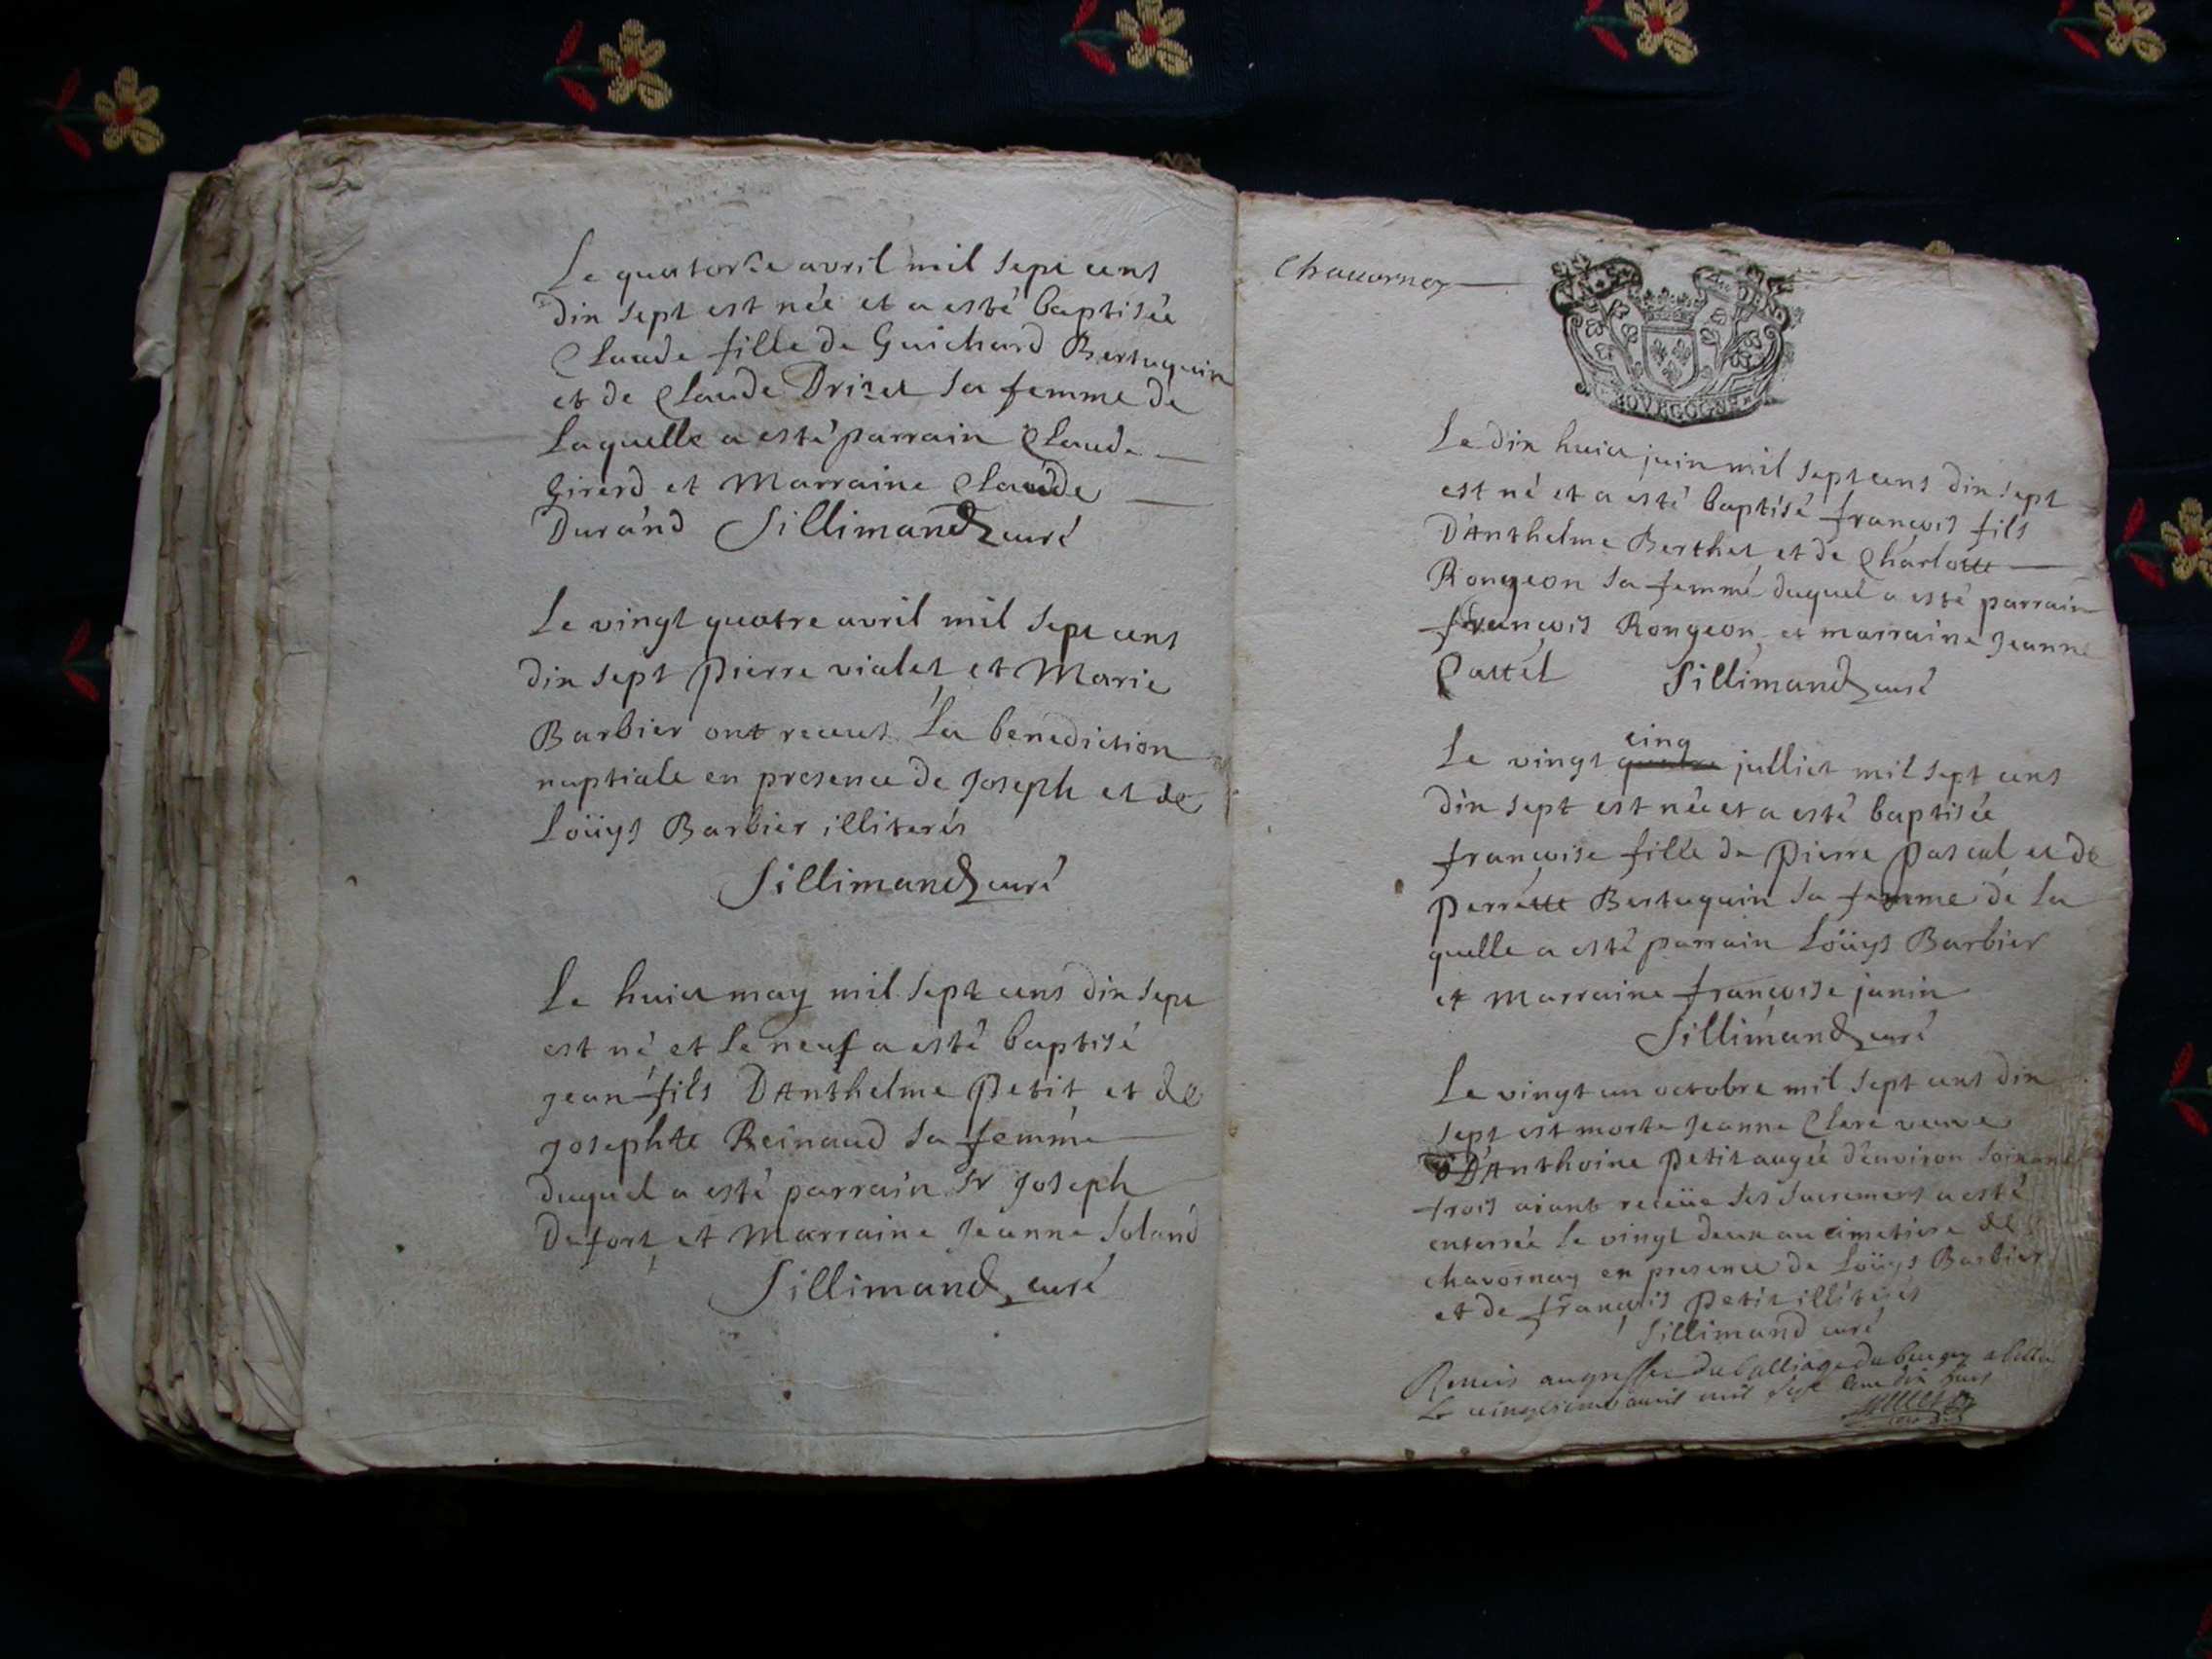 Le quatorze avril mil sept cens
dix sept est née et a esté baptisée
Claude fille de Guichard Bertuquin
et de Claude Drizet sa femme de
laquelle a esté parrain Claude
Girerd et Marraine Claude
Durand Sillimand curé
Le vingt quatre avril mil sept cens
dix sept pierre vialet et Marie
Barbier ont receus la benediction
nuptiale en presence de Joseph et de
Loüys Barbier illiterés
Sillimand curé
Le huict may mil sept cens dix sept
est né et le neuf a esté baptisé
jean fils D'Anthelme Petit et de
josephte Reinaud sa femme
duquel a esté parrain sr Joseph
Defort et Marraine Jeanne Soland
Sillimand curé
Chauornay
BOVRGOGNE
Le dix huict juin mil sept cens dix sept
est né et a esté baptisé françois fils
D'Anthelme Berthet et de Charlotte
Rongeon sa femme duquel a esté parrain
françois Rongeon et marraine Jeanne
Cattel Sillimand curé
cinq
Le vingt quatre julliet mil sept cens
dix sept est née et a esté baptisée
françoise fille de pierre pascal et de
perrette Bertuquin sa femme de la
quelle a esté parrain Loüys Barbier
et Marraine françoise janin
Sillimand curé
Le vingt un octobre mil sept cens dix
sept est morte Jeanne Clerc veuve
D'Anthoine petit augée d'environ soixante
trois aiant receüe ses sacremens a esté
enterrée le vingt deux au cimetiere de
chavornay en presence de Loüys Barbier
et de françois petit illiterés
Sillimand curé
Remis au greffe du balliage du bugey a belley
Le avril mil sept cent dix huit